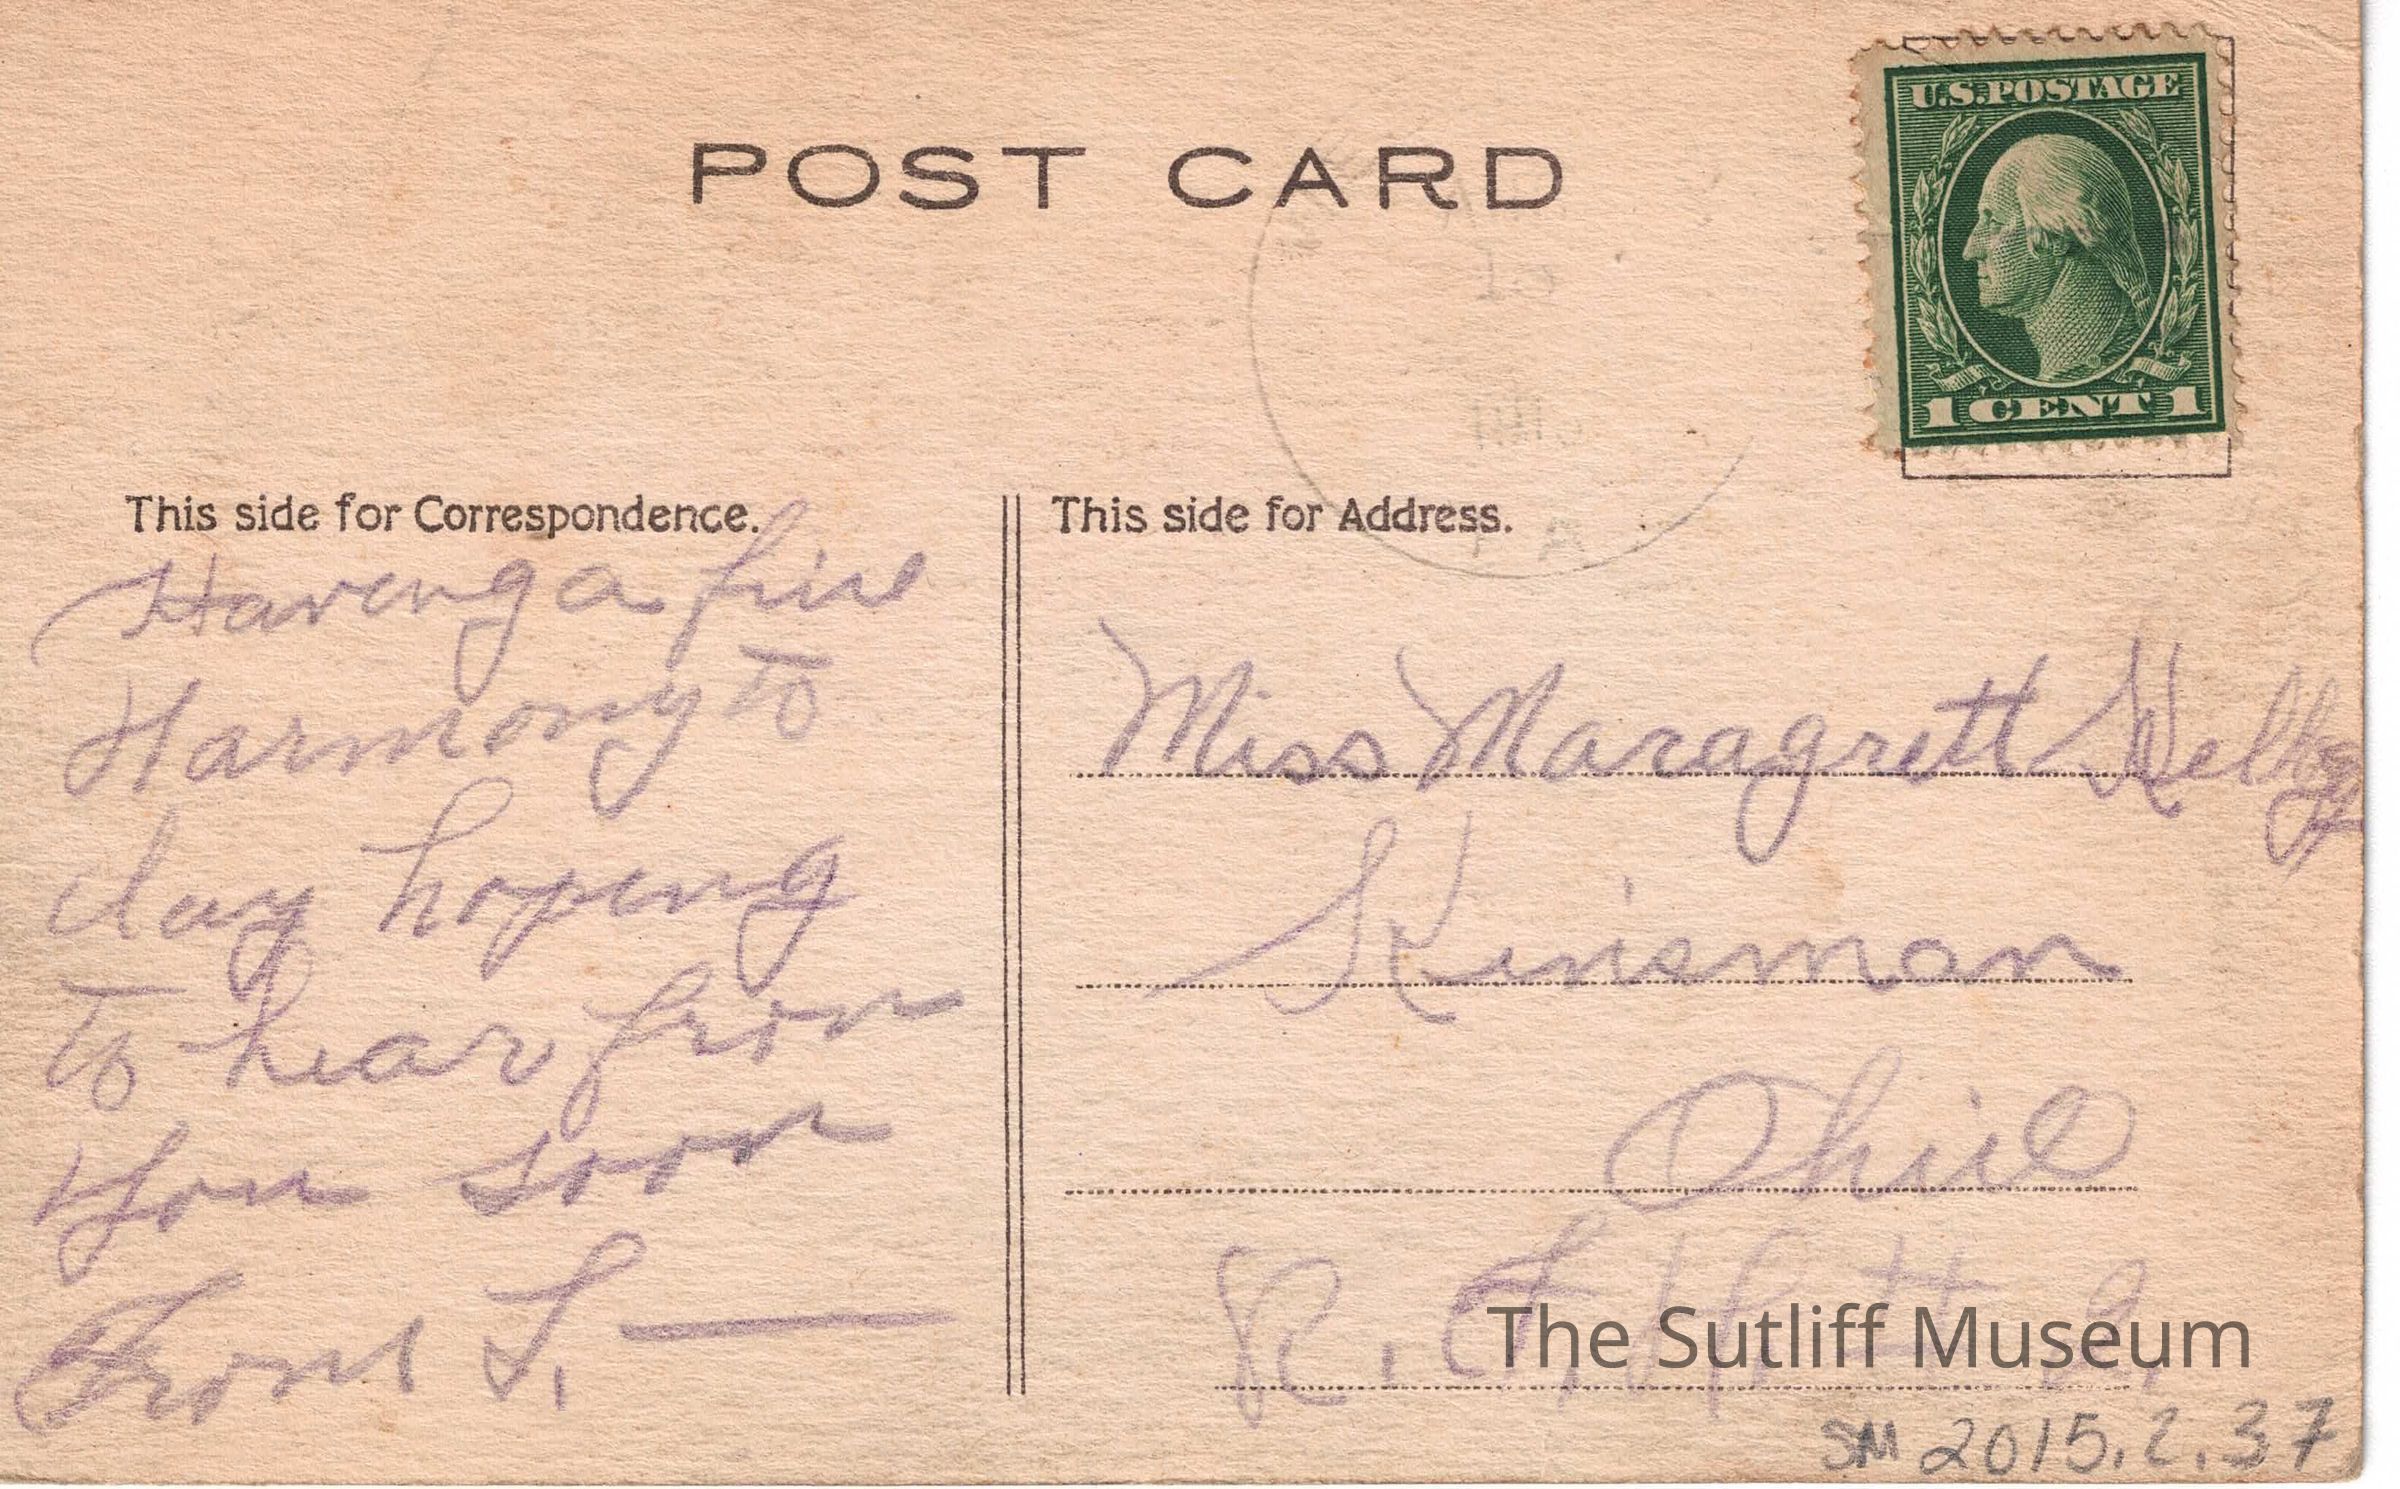 POST CARD
U.S. POSTAGE
1 CENT 1
This side for Correspondence.
Haveing a fine
Harmony to
day hopeing
to hear from
you soon
From L.
This side for Address.
Miss Maragrett
Kinsman
Ohio
R. F. D. # 2,
The Sutliff Museum
SM 2015.2.37